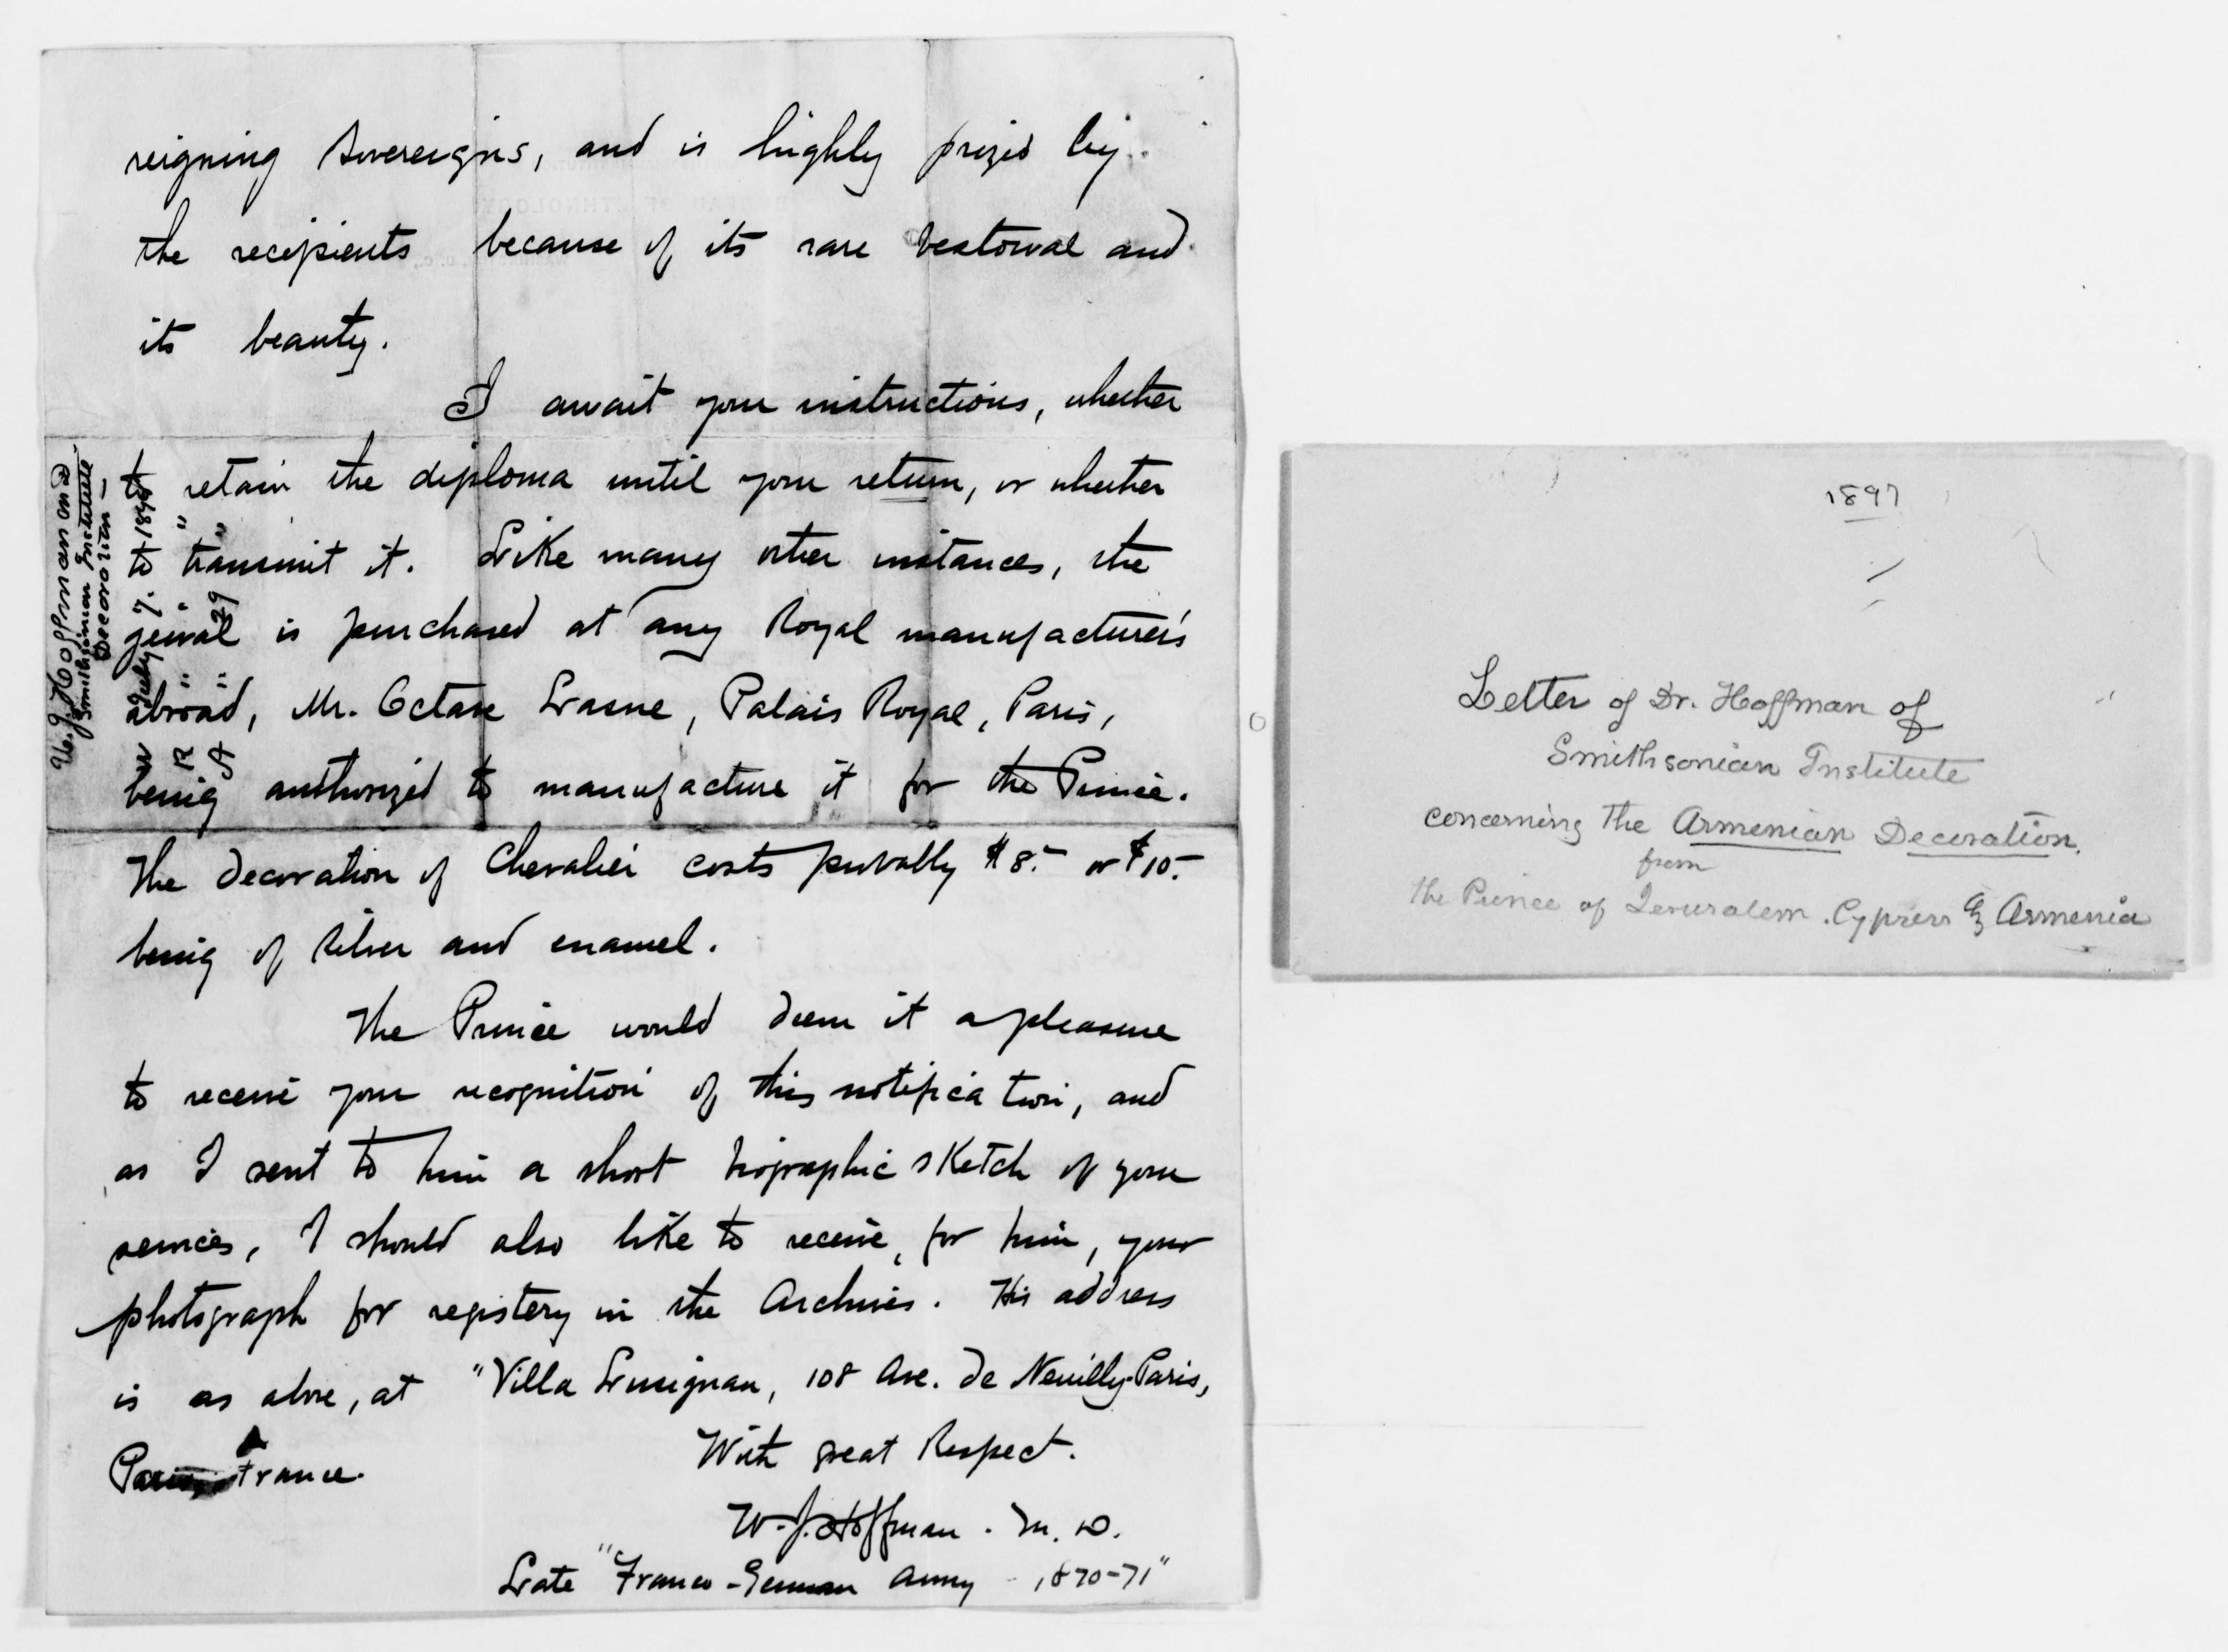 reigning sovereigns, and is highly prized by
the recipients because of its rare bestowal and
its beauty.
I await your instructions, whether
to retain the diploma until your return, or whether
to transmit it. Like many other instances, the
jewel is purchased at any Royal manufacturer's
abroad, Mr. Octave Lasne, Palais Royal, Paris,
being authorized to manufacture it for the Prince.
The decoration of Chevalier costs probably $8.- or $10.-
being of silver and enamel.
The Prince would deem it a pleasure
to receive your recognition of this notification, and
as I sent to him a short biographic sketch of your
services, I should also like to receive, for him, your
photograph for registery in the Archives. His address
is as above, at "Villa Lusignan, 108 Ave. de Neuilly-Paris,
France.
With great Respect.
W. J. Hoffman. M. D.
Late "Franco-German Army 1870-71"
W. J. Hoffman
Smithsinion Institute
Decoration —
W July 7. 1897
R " "
A " 29 "
1897
Letter of Dr. Hoffman of
Smithsonian Institute
concerning The Armenian Decoration.
from
the Prince of Jerusalem. Cypress & Armenia